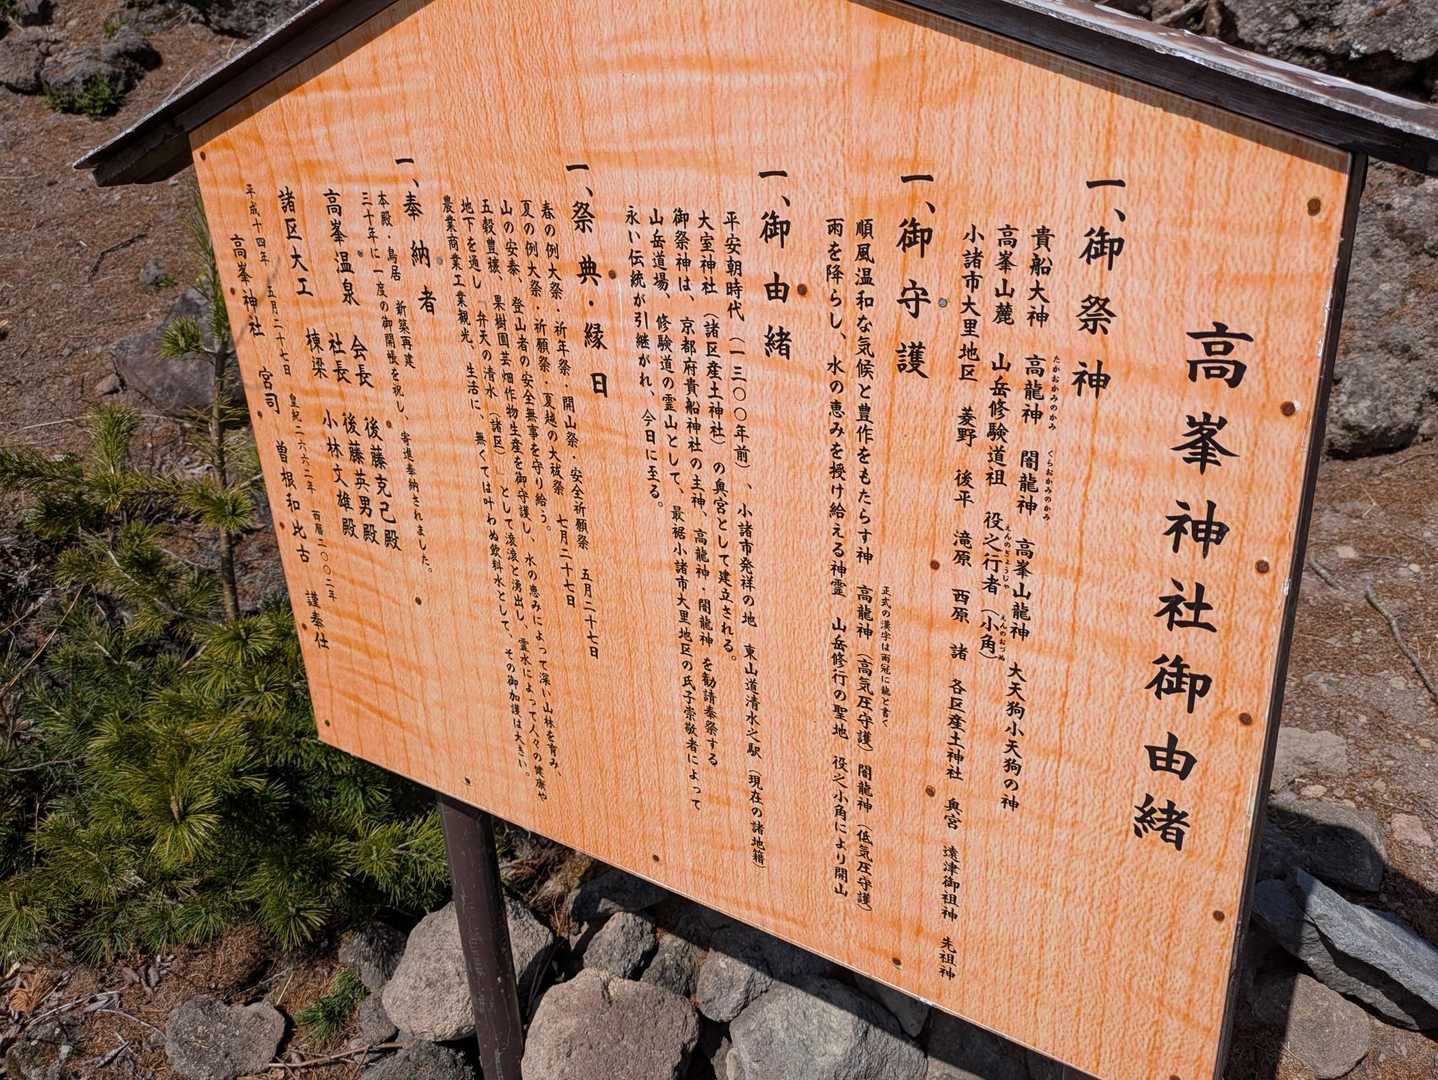 高峯神社御由緒
一、御祭神
貴船大神　高龍神　闇龍神　高峯山龍神　大天狗小天狗の神
たかおかみのかみ　くらおかみのかみ
高峯山麓　山岳修験道祖　役之行者（小角）
えんのぎょうじゃ　えんのおづぬ
小諸市大里地区　菱野　後平　滝原　西原　諸　各区産土神社　奥宮　遠津御祖神　先祖神
一、御守護
正式の漢字は雨冠に龍と書く
順風温和な気候と豊作をもたらす神　高龍神（高気圧守護）闇龍神（低気圧守護）
雨を降らし、水の恵みを授け給える神霊　山岳修行の聖地　役之小角により開山
一、御由緒
平安朝時代（一三〇〇年前）、小諸市発祥の地　東山道清水之駅（現在の諸地籍）
大室神社（諸区産土神社）の奥宮として建立される。
御祭神は、京都府貴船神社の主神、高龍神・闇龍神　を勧請奉祭する
山岳道場、修験道の霊山として、最裾小諸市大里地区の氏子崇敬者によって
永い伝統が引継がれ、今日に至る。
一、祭典・縁日
春の例大祭・祈年祭・開山祭・安全祈願祭　五月二十七日
夏の例大祭・祈願祭・夏越の大祓祭　七月二十七日
山の安泰、登山者の安全無事を守り給う。
五穀豊穣、果樹園芸畑作物生産を御守護し、水の恵みによって深い山林を育み、
地下を通し「弁天の清水（諸区）」として滾滾と湧出し、霊水によって人々の健康や
農業商業工業観光、生活に、無くては叶わぬ飲料水として、その御加護は大きい。
一、奉納者
本殿・鳥居　新築再建
三十年に一度の御開帳を祝し、寄進奉納されました。
高峯温泉　会長　後藤克己殿
社長　後藤英男殿
諸区大工　棟梁　小林文雄殿
平成十四年　五月二十七日　皇紀二六六二年　西暦二〇〇二年
高峯神社　宮司　曽根和比古　謹奉仕